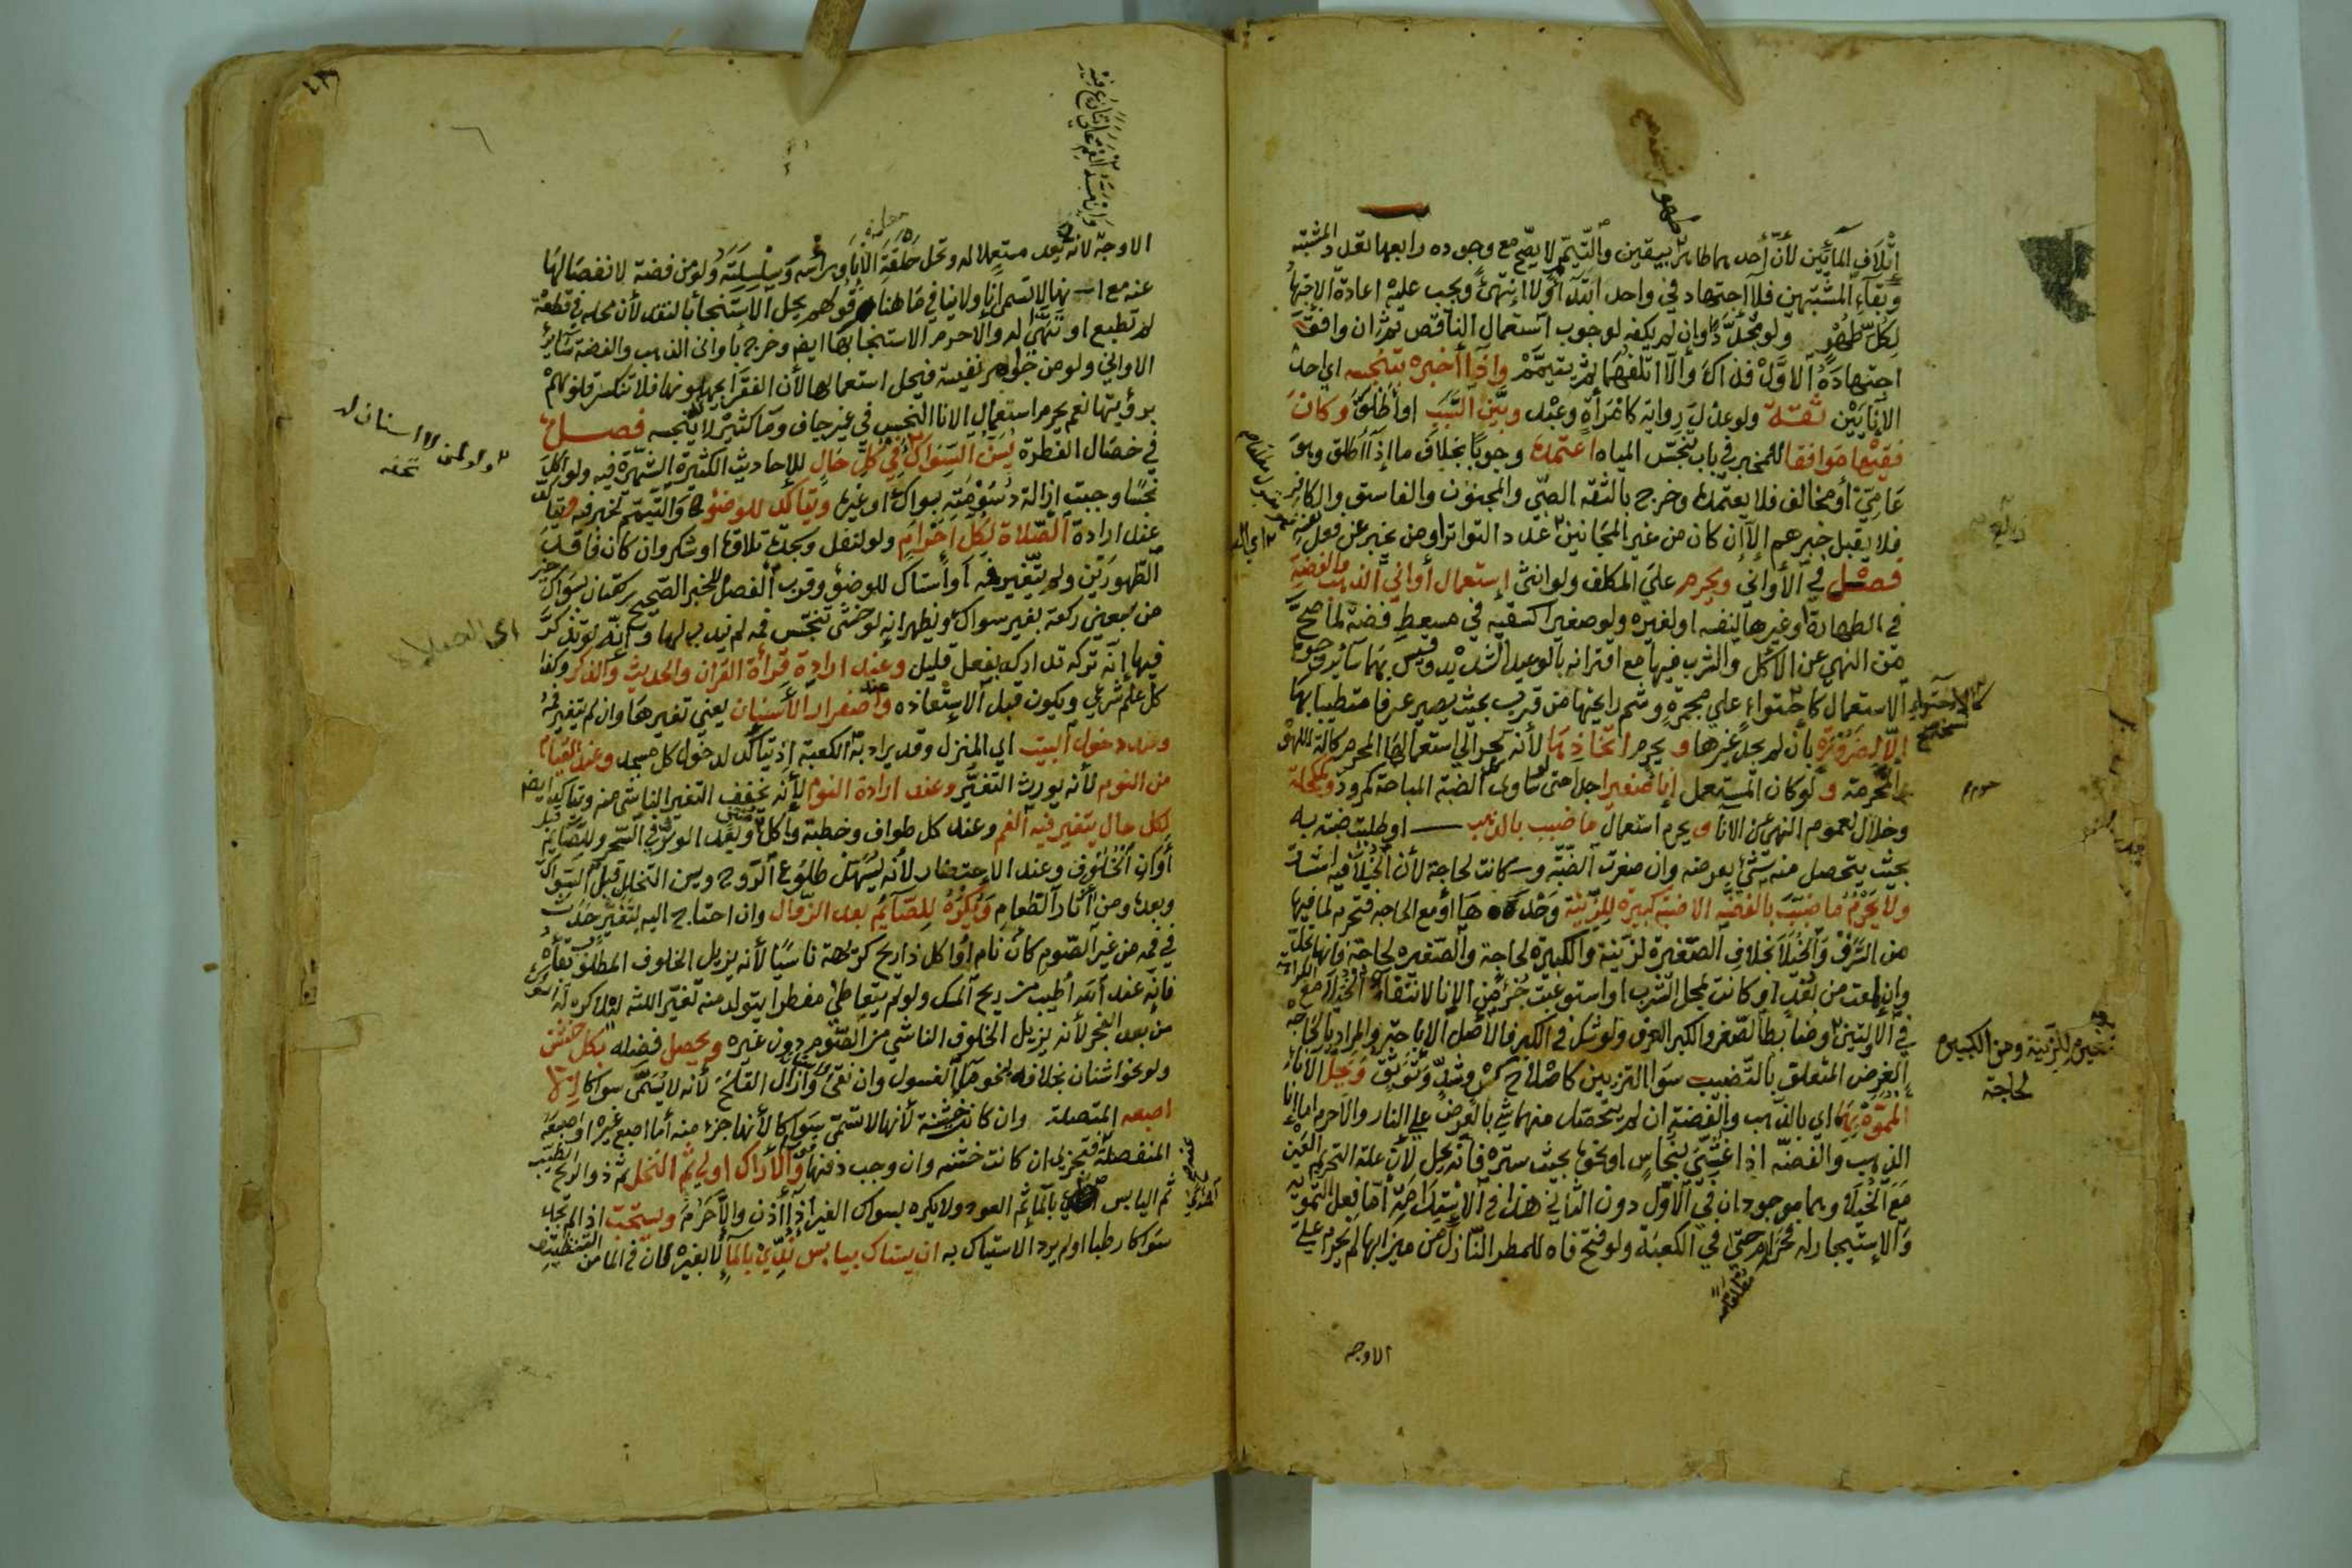 إتلاف المائين لأن أحدهما طاهر بيقين والتيمم لا يصح مع وجوده رابعها تعدد المشتبه
وبقاء المشتبهين فلا اجتهاد في واحد ابتداء ولا انتهى ويجب عليه اعادة الاجتهاد
لكل طهر ولو مجددا وان لم يكفه لوجوب استعمال الناقص ثم ان وافق
اجتهاده الاول فذاك والا اتلفهما ثم يتيمم واذا أخبره بتنجسه اي احد
الإنايين ثقة ولو عدل رواية كامرأة وعبد وبين السبب او أطلق وكان
فقيها موافقا للمخبر في باب تنجس المياه اعتمده وجوبا بخلاف ما إذا اطلق وهو
عامي أو مخالف فلا يعتمده وخرج بالثقة الصبي والمجنون والفاسق والكافر
فلا يقبل خبرهم الا إن كان من غير المجانين عدد التواتر او من يخبر عن فعل نفسه
فصل في الأواني ويحرم علي المكلف ولو انثى إستعمال أواني الذهب والفضة
في الطهارة وغيرها لنفسه او لغيره ولو صغيرا كسقيه في مسعط فضة لما صح
من النهي عن الأكل والشرب فيها مع اقترانه بالوعيد الشديد وقيس بهما سائر وجوه
الاستعمال كاحتواء علي مجمرة وشم رائحتها من قرب بحيث يصير عرفا متطيبا بها
إلا لضرورة بأن لم يجد غيرها ويحرم اتخاذها لأنه يجر الي استعمالها المحرم كآلة اللهو
المحرمة ولو كان المستعمل إناء صغيرا جدا حتى ساوى الضبة المباحة كمرود ومكحلة
وخلال لعموم النهي عن الانا ويحرم استعمال ما ضبب بالذهب او طليت ضبته به
بحيث يتحصل منه شئ بعرضه وان صغرت الضبة وكانت لحاجة لأن الخيلا فيه اشد
ولا يحرم ما ضبب بالفضة الا ضبة كبيرة للزينة وحدها أو مع الحاجة فتحرم لما فيها
من السرف والخيلا بخلاف الصغيرة لزينة والكبيرة لحاجة والصغيرة لحاجة فانها تحل
وإن لمعت من بعد او كانت لمحل الشرب او استوعبت جزء من الإنا لانتفاء الخيلا مع الكراهة
في الأولتين وضابط الصغر والكبر العرف ولو شك في الكبر فالأصل الاباحة والمراد بالحاجة
الغرض المتعلق بالتضبيب سوا التزيين كاصلاح كسر وشد وتوثق وحل الآناء
المموه بهما اي بالذهب والفضة ان لم يتحصل منهما شي بالعرض علي النار والا حرم اما إنا
الذهب والفضة اذا غشي بنحاس او نحوه بحيث ستره فانه يحل لأن علة التحريم العين
مع الخيلا وهما موجودان في الأول دون الثاني هذا في الاستدامة أما فعل التمويه
والإستيجار له فحرام حتى في الكعبة ولو فتح فاه للمطر النازل من ميزابها لم يحرم علي
الاوجه
لحاجة
الاوجه لأنه لا يعد مستعملا له وتحل حلقة الإناء ورأسه وسلسلته ولو من فضة لانفصالها
عنه مع انها لا تسمى إنا ولا ينافي ما هنا قولهم يحل الاستنجا بالنقد لأن محله في قطعة
لم تطبع او تهيئ له والا حرم الاستنجا بها ايضا وخرج بأواني الذهب والفضة سائر
الاواني ولو من جواهر نفيسة فيحل استعمالها لأن الفقرا يجهلونها فلا تنكسر قلوبهم
برؤيتها نعم يحرم استعمال الانا النجس في غير جاف وماء كثير لا ينجسه فصل
في خصال الفطرة يسن السواك في كل حال للاحاديث الكثيرة الشهيرة فيه ولو أكل
نجسا وجبت ازالة دسومته بسواك او غيره ويتأكد للوضوء والتيمم لخبر فيه
عند ارادة الصلاة لكل احرام ولو لنفل وسجدة تلاوة او شكر وان كان فاقد
الطهورين ولم يتغير فمه او استاك للوضوء وقرب الفصل للخبر الصحيح ركعتان بسواك خير
من سبعين ركعة بغير سواك ويظهر انه لو خشي تنجس فمه لم يندب لها وانه لو تذكر
فيها انه تركه تداركه بفعل قليل وعند ارادة قرأة القرآن والحديث والذكر وكذا
كل علم شرعي ويكون قبل الاستعاذه وعند اصفرار الأسنان يعني تغيرها وان لم يتغير فمه
وعند دخول البيت اي المنزل وقد يراد به الكعبة إذ يتأكد لدخول كل مسجد وعند القيام
من النوم لأنه يورث التغير وعند ارادة النوم لأنه يخفف التغير الناشي منه ويتأكد ايضا
لكل حال يتغير فيه الفم وعند كل طواف وخطبة واكل وبعد الوتر وفي السحر وللصائم قبل
أوان الخلوف وعند الاحتضار لأنه يسهل طلوع الروح ويسن التخلل قبل السواك
وبعده ومن آثار الطعام ويكره للصائم بعد الزوال وان احتاج اليه لتغير حدث
في فمه من غير الصوم كأن نام أو اكل ذا ريح كريهة ناسيا لأنه يزيل الخلوف المطلوب بقاؤه
فانه عند الله أطيب من ريح المسك ولو لم يتعاطى مفطرا يتولد منه تغير
من بعد الفجر لأنه يزيل الخلوف الناشي من الصوم دون غيره ويحصل فضله بكل خشن
ولو نحو اشنان بخلاف نحو الغسول وان نقى وأزال القلح لأنه لا يسمى سواكا إلا
اصبعه المتصلة وان كانت خشنة لأنها لا تسمى سواكا لأنها جزء منه أما اصبع غيره او اصبعه
المنفصلة فتجزي ان كانت خشنه وان وجب دفنها والأراك اولى ثم النخل ثم ذو الريح الطيب
ثم اليابس المندى بالماء ثم العود ولا يكره بسواك الغير إذا أذن والا حرم ويستحب اذا لم يجد
سواكا رطبا او لم يرد الاستياك به ان يستاك بيابس ندي بالماء لا بغيره لأن في الما من التنظيف
اي الصلاة